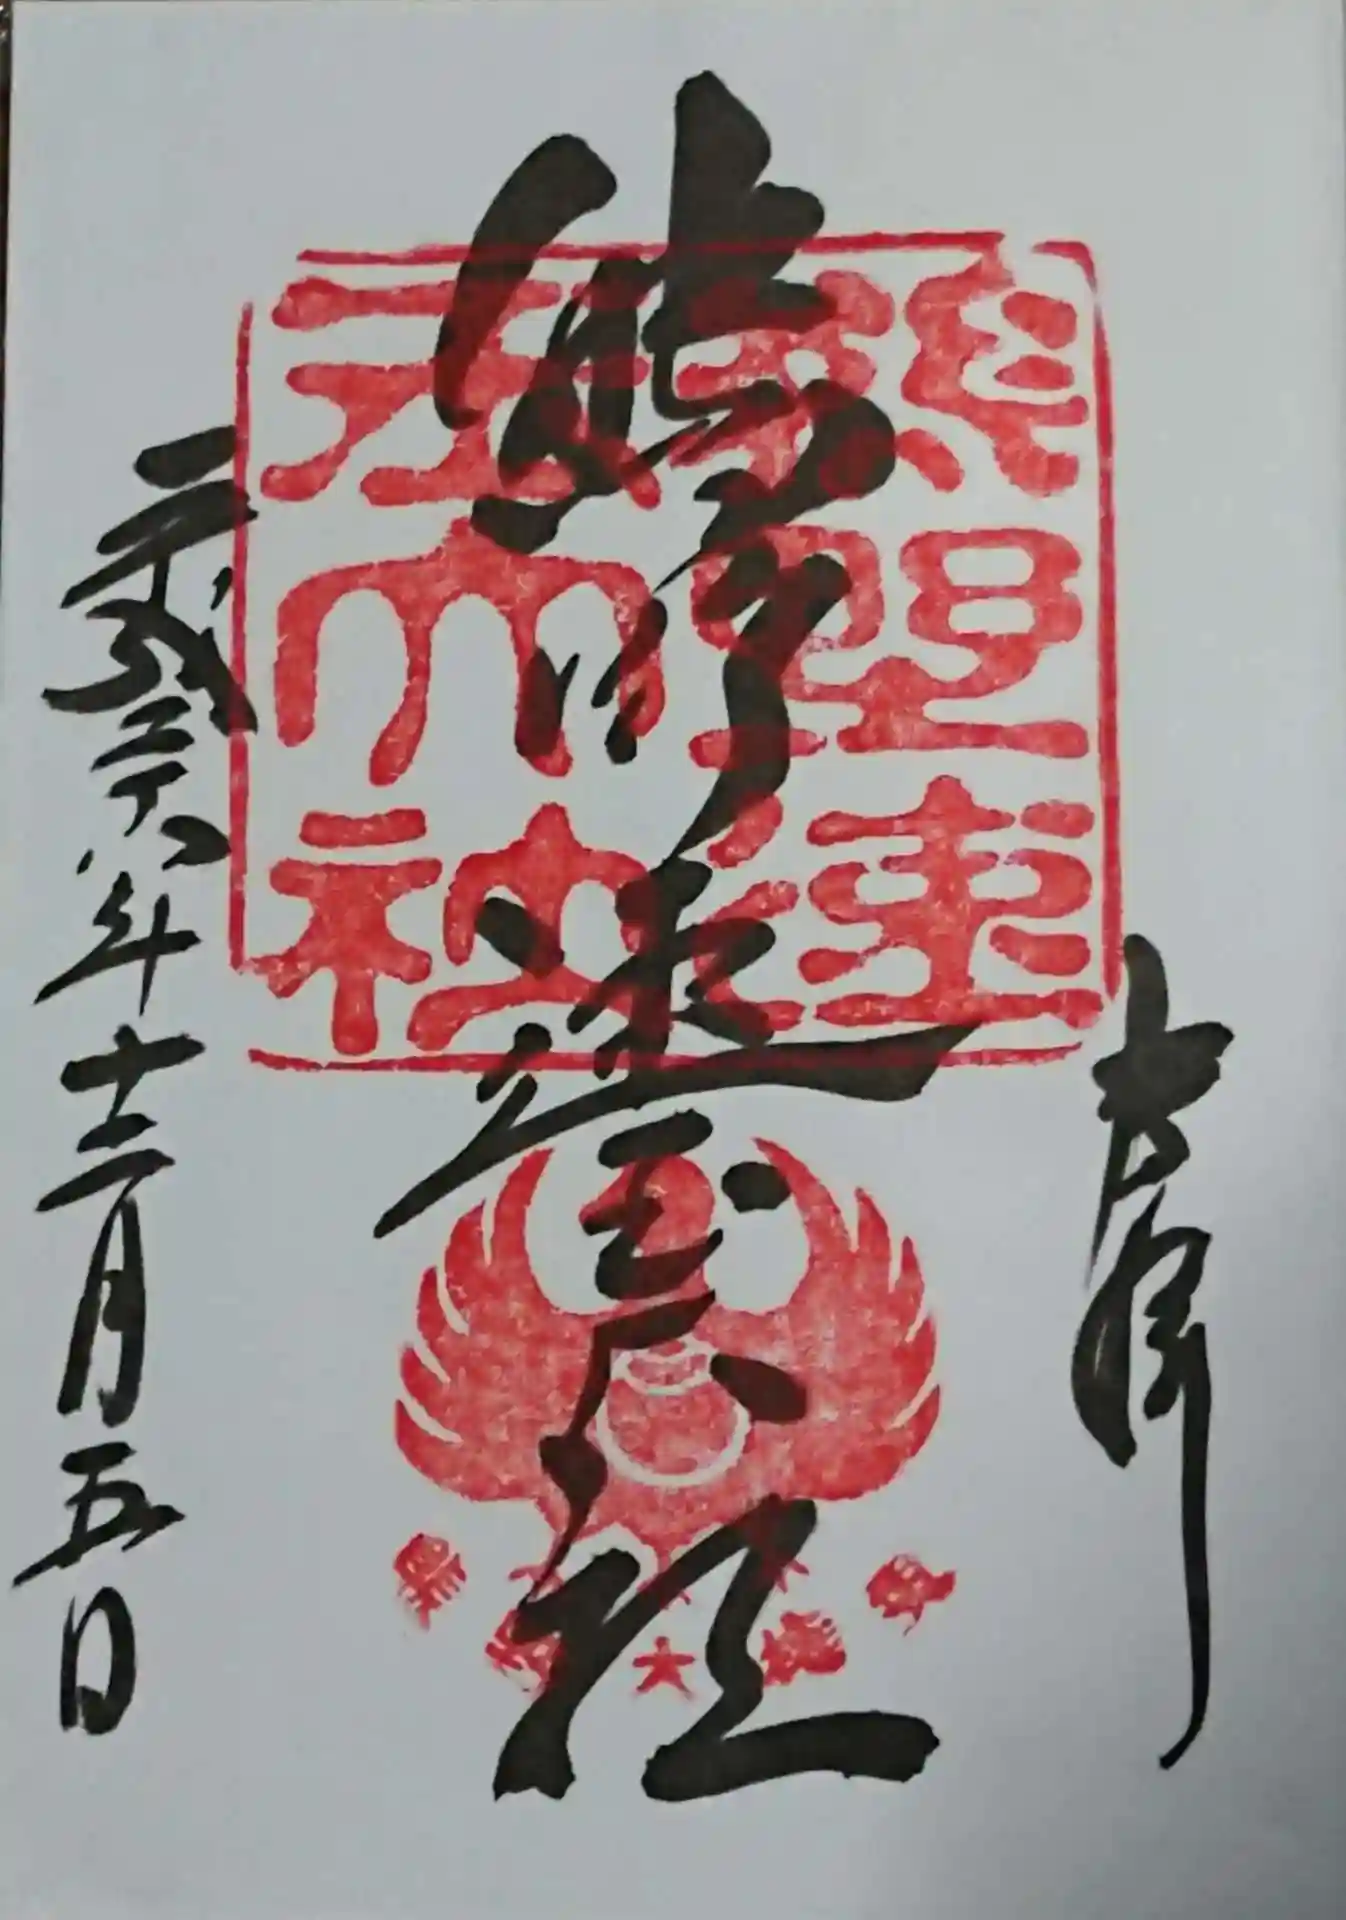 奉拝
熊野速玉大社
平成二十八年十二月五日
熊野速
玉大社
大